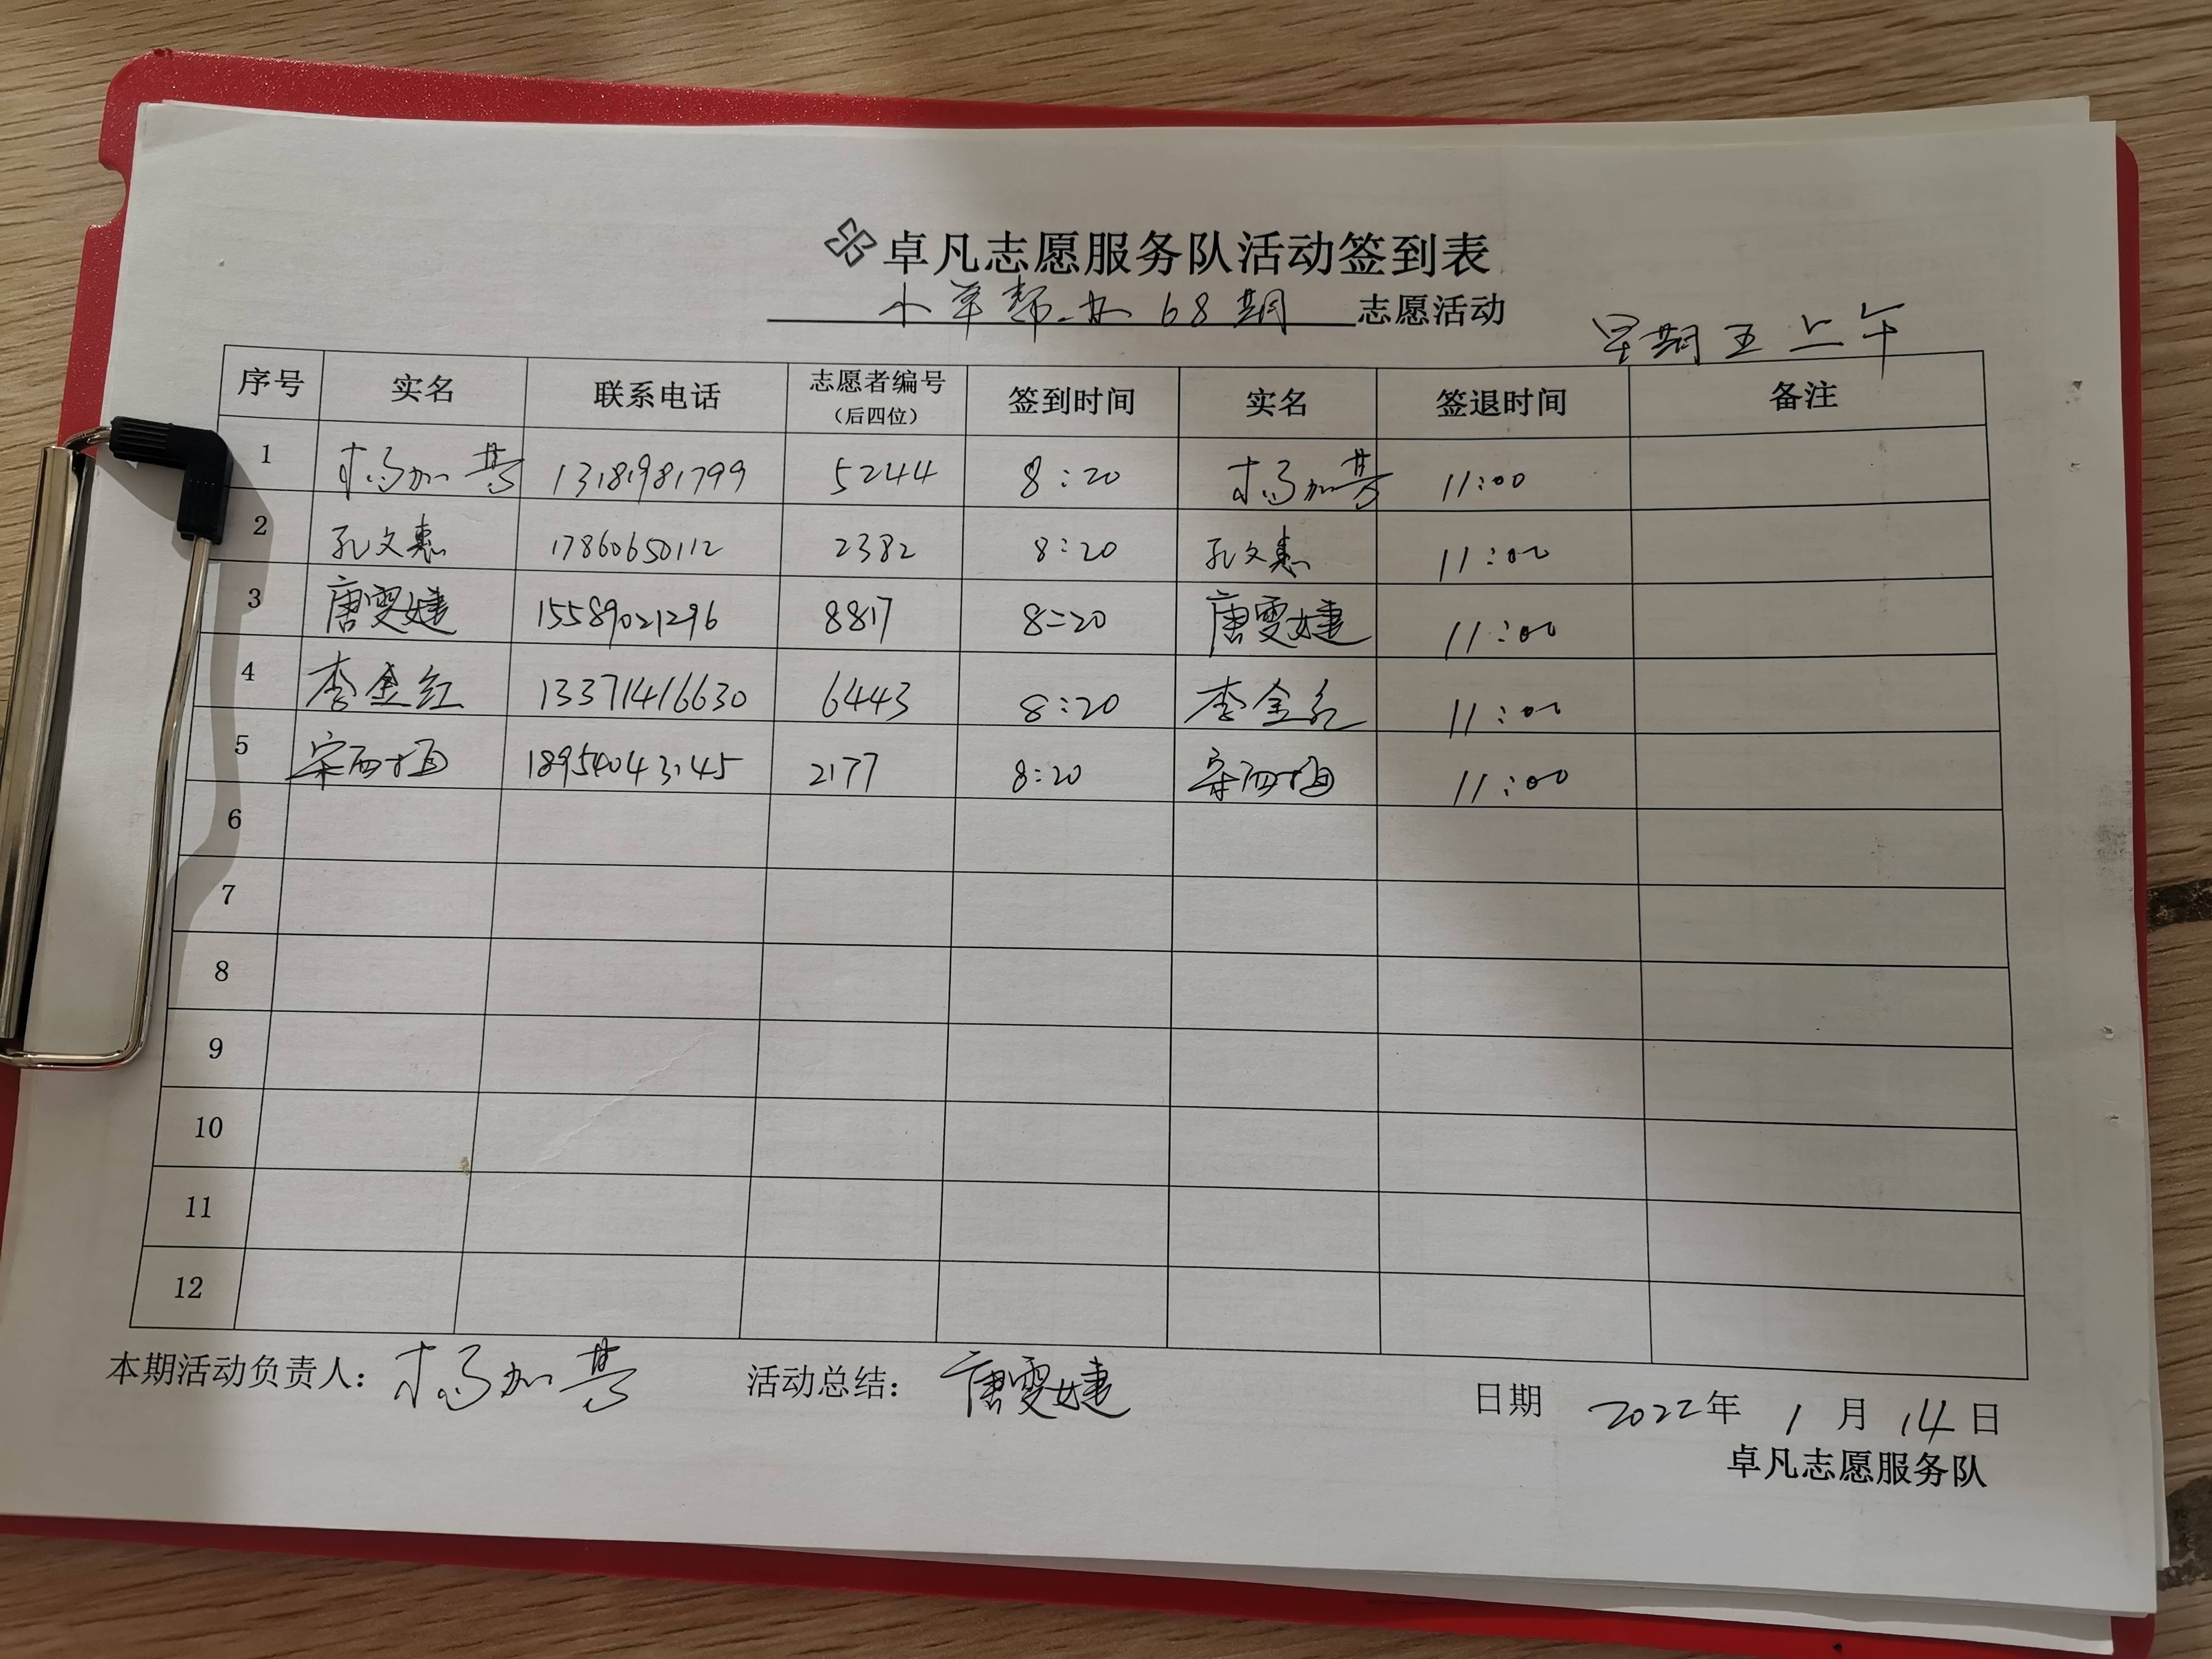 卓凡志愿服务队活动签到表
小草帮办68期 志愿活动
星期五上午
序号 实名 联系电话 志愿者编号（后四位） 签到时间 实名 签退时间 备注
1 13181981799 5244 8:20 11:00
2 孔文惠 17860650112 2382 8:20 孔文惠 11:00
3 唐雯婕 15589021296 8817 8:20 唐雯婕 11:00
4 李金红 13371416630 6443 8:20 李金红 11:00
5 宋西梅 18954043145 2177 8:20 宋西梅 11:00
6
7
8
9
10
11
12
本期活动负责人： 活动总结：唐雯婕 日期 2022年1月14日
卓凡志愿服务队